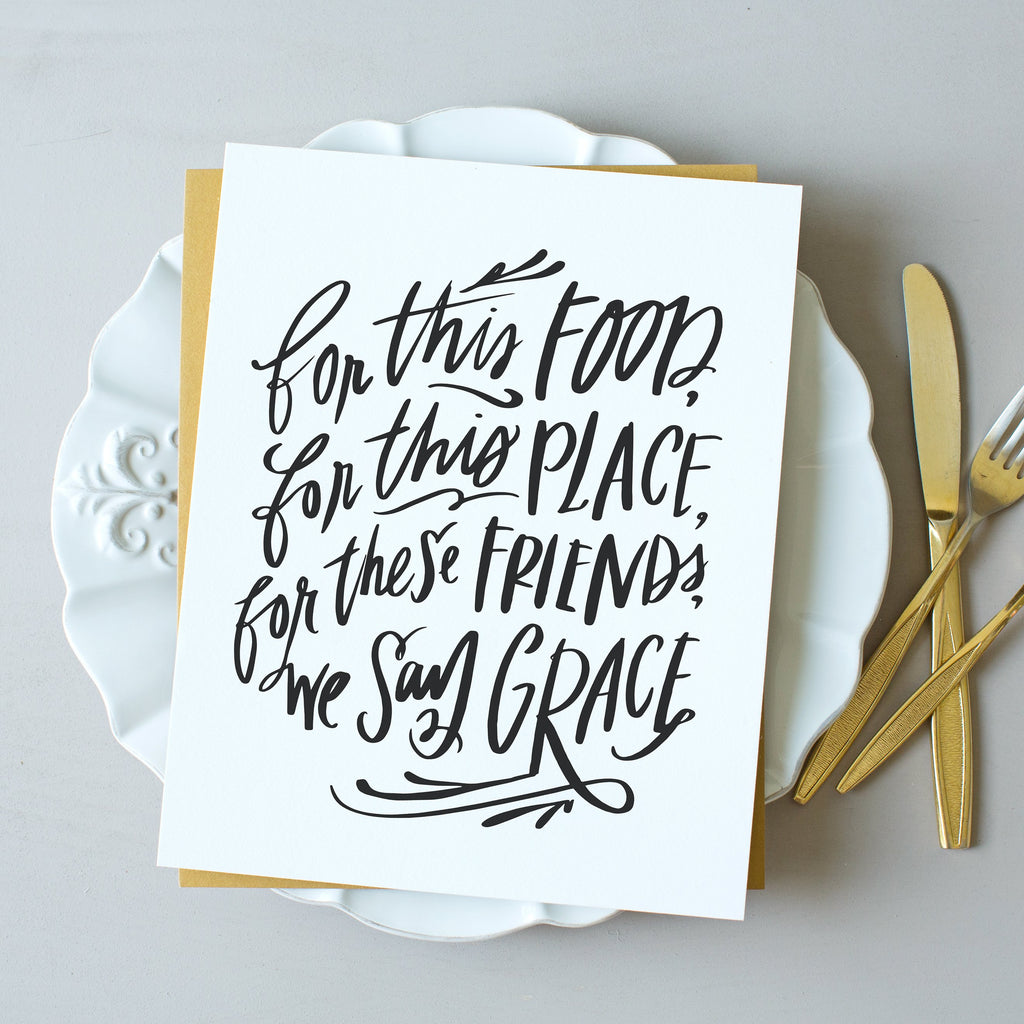 for this FOOD,
for this PLACE,
for these FRIENDS,
we say GRACE